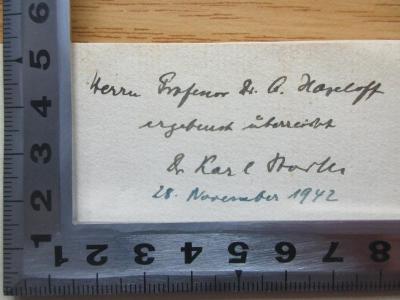 Herrn Professor Dr. A. Haseloff
ergebenst überreicht
Dr. Karl
28. November 1942
6
5
4
3
2
1
3 2 1 1 2 3 4 5 6 7 8